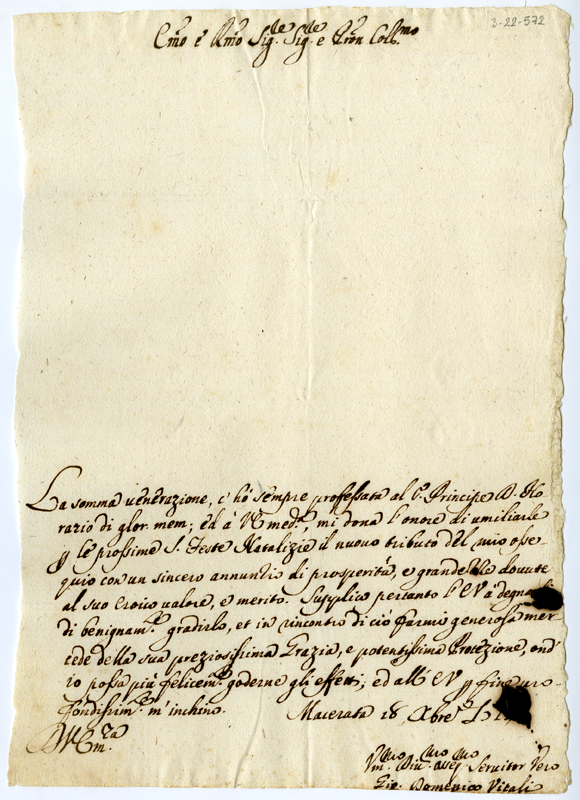 3-22-572
Em̃o e Rm̃o Sig.re Sig.re e Pron Coll.mo
La somma venerazione, c'hò sempre professata al P. Principe D. Ho
razio di glor. mem; ed à VE med.a, mi dona l'onore di umiliarle
p le prossime S. Feste Natalizie il nuovo tributo del mio osse-
quio con un sincero annunzio di prosperità, e grandezze dovute
al suo eroico valore, e merito. Supplico pertanto l'EV à
di benignam.te gradirlo, et in rincontro di ciò farmi generosa mer-
cede della sua preziosissima Grazia, e potentissima Protezione, ond'
io possa più felicem.te goderne gli effetti; ed all'EV p fine pro-
fondissim.te m'inchino. Macerata 18 Xbre
Vm̃o Div.mo Osseq.mo Servitor Vero
Gio. Domenico Vitali